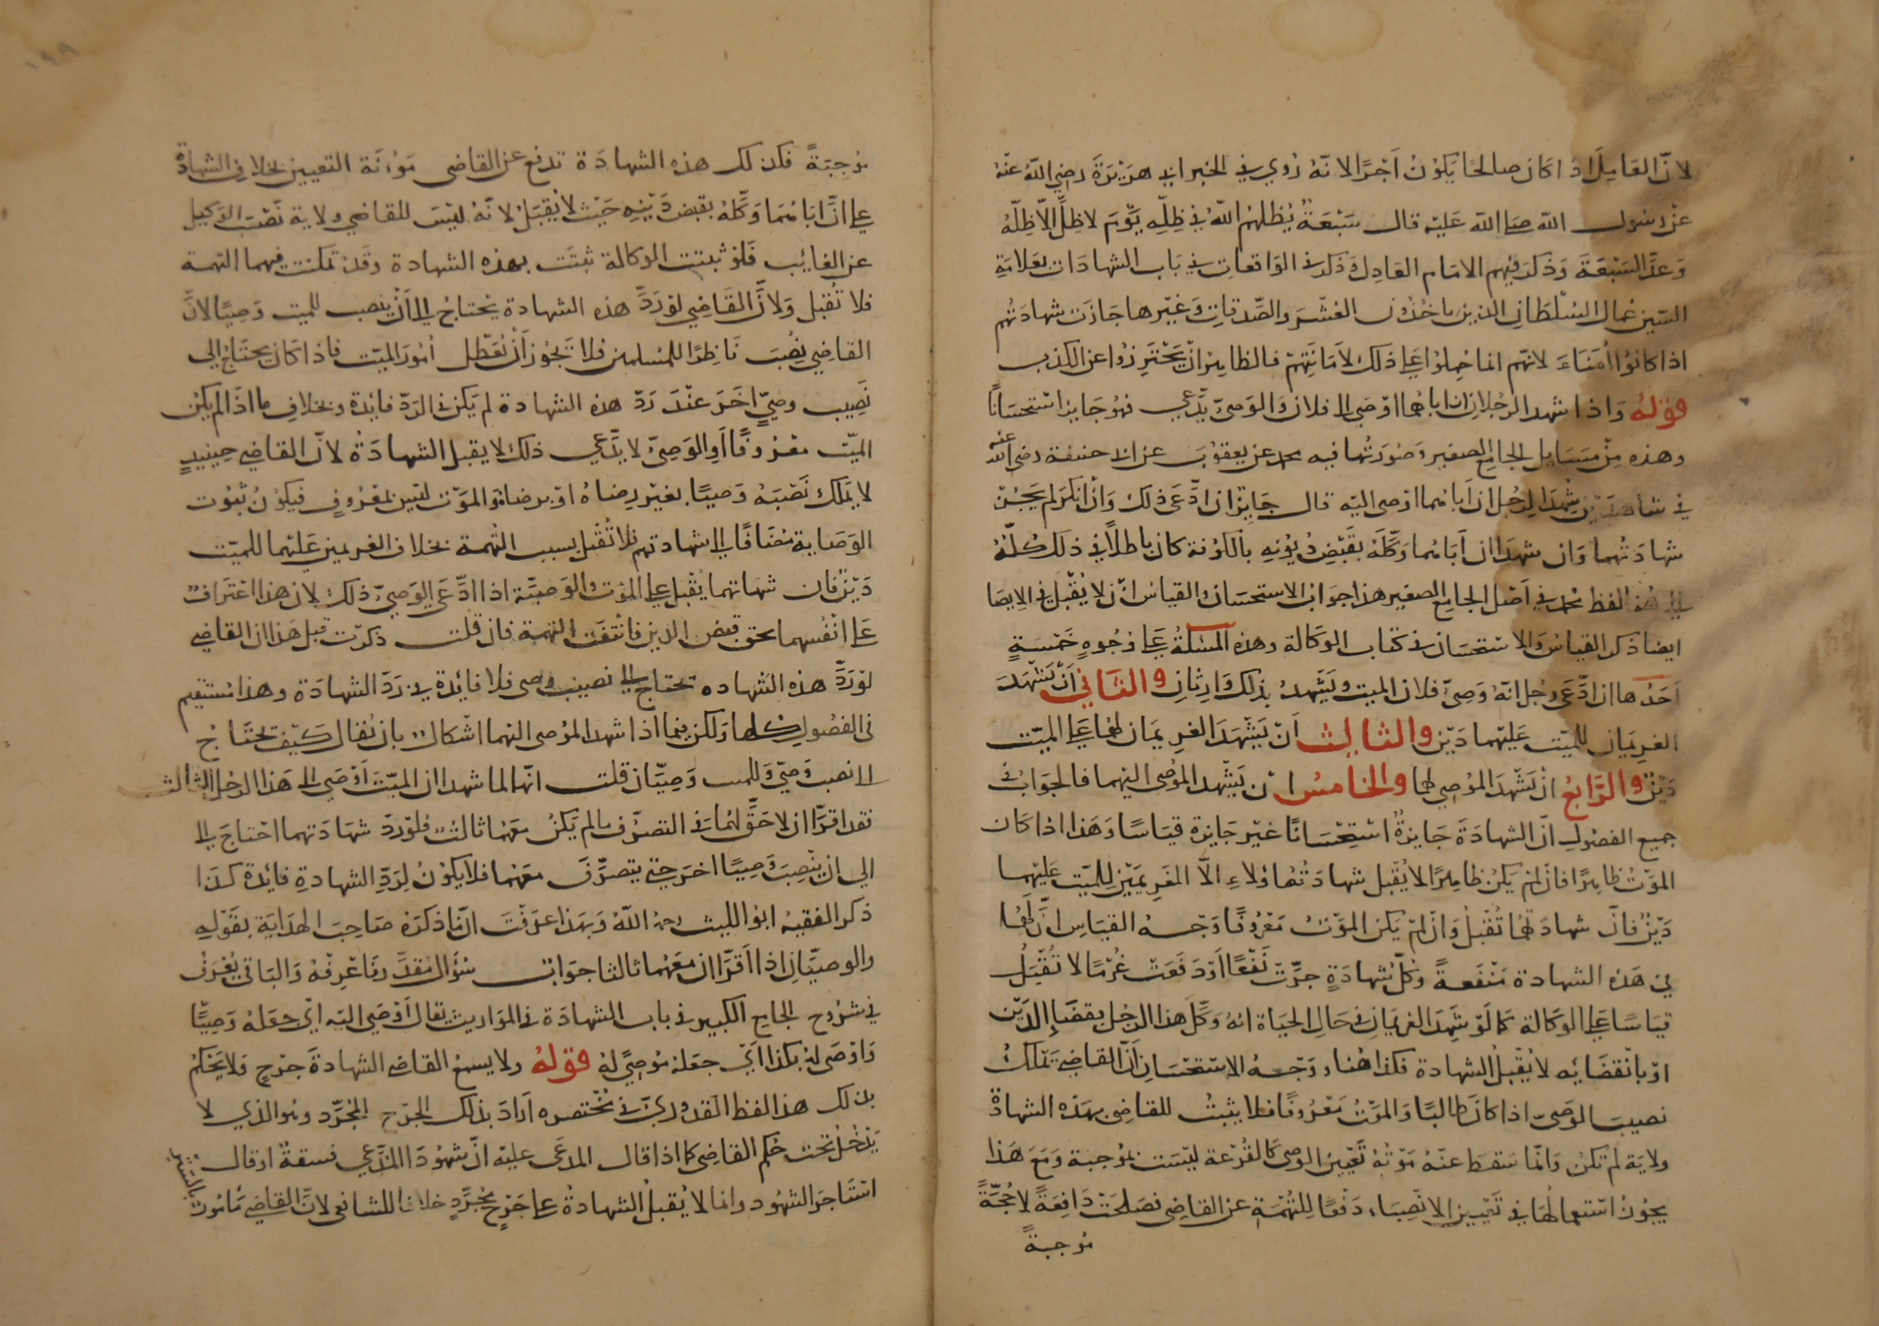 لان العامل اذا كان صالحا يكون اجرا لانه روي في الخبر ابي هريرة رضي الله عنه
عن رسول الله صلى الله عليه قال سبعة يظلهم الله في ظله يوم لا ظل الا ظله
وعد السبعة وذكر فيهم الامام العادل وذكر في الواقعات في باب الشهادات بعلامة
السين عمال السلطان الذين ياخذون العشر والصدقات وغيرها جازت شهادتهم
اذا كانوا امناء لانهم انما حملوا على ذلك لامانتهم فالظاهر ان يحترزوا عن الكذب
قوله واذا شهد الرجلان ان اباهما اوصى الى فلان والوصي يدعي فهو جايز استحسانا
وهذه من مسايل الجامع الصغير وصورتها فيه محمد عن يعقوب عن ابي حنيفة رضي الله عنه
في شاهدين شهدا لرجل ان اباهما اوصى اليه قال جايز ان ادعى ذلك وان انكر لم يجز
شهادتهما وان شهدا ان اباهما وكله بقبض ديونه بالكوفة كان باطلا في ذلك كله
لفظ محمد في اصل الجامع الصغير هذا جواب الاستحسان والقياس ان لا يقبل في الايصا
ايضا ذكر القياس والاستحسان في كتاب الوكالة وهذه المسئلة على وجوه خمسة
احدها ان ادعى رجل انه وصي فلان الميت ويشهد بذلك وارثان والثاني ان يشهد
الغريمان للميت عليهما دين والثالث ان يشهد الغريمان لهما على الميت
دين والرابع ان يشهد الموصى لهما والخامس ان يشهد الموصى اليهما فالجواب في
جميع الفصول ان الشهادة جايزة استحسانا غير جايزة قياسا وهذا اذا كان
الموت ظاهرا فان لم يكن ظاهرا لا يقبل شهادتها ولاء الا الغريمين للميت عليهما
دين فان شهادتهما تقبل وان لم يكن الموت معروفا وجه القياس ان لهما
في هذه الشهادة منفعة وكل شهادة جرت نفعا او دفعت غرما لا تقبل
قياسا على الوكالة كما لو شهد الغريمان في حال الحياة انه وكل هذا الرجل بقضا الدين
او بانقضايه لا يقبل الشهادة فكذا هنا وجه الاستحسان ان القاضي تملك
نصب الوصي اذا كان طالبا والموت معروفا فلا يثبت للقاضي بهذه الشهادة
ولاية لم تكن وانما سقط عنه موئة تعيين الوصي كالقرعة ليست بموجبة ومع هذا
يجوز استعمالها في تمييز الانصباء دفعا للتهمة عن القاضي فصلحت دافعة لا حجة
موجبة
موجبة فكذلك هذه الشهادة تدفع عن القاضي مؤنة التعيين بخلاف الشهادة
على ان اباهما وكله بقبض دينه حيث لا يقبل لانه ليس للقاضي ولاية نصب الوكيل
عن الغايب فلو ثبتت الوكالة ثبتت بهذه الشهادة وقد تمكنت فيهما التهمة
فلا تقبل ولان القاضي لو رد هذه الشهادة يحتاج الى ان ينصب للميت وصيا لان
القاضي نصب ناظرا للمسلمين فلا يجوز ان تعطل امور الميت فاذا كان يحتاج الى
نصب وصي اخر عند رد هذه الشهادة لم يكن في الرد فايدة وبخلاف ما اذا لم يكن
الميت معروفا او الوصي لا يدعي ذلك لا يقبل الشهادة لان القاضي حينيذ
لا يملك نصبه وصيا بغير رضاه او برضاه والموت ليس بمعروف فيكون ثبوت
الوصاية مضافا الى شهادتهم فلا تقبل بسبب التهمة بخلاف الغريمين عليهما للميت
دين فان شهاتهما يقبل على الموت والوصية اذا ادعى الوصي ذلك لان هذا اعتراف
على انفسهما بحق قبض الدين فانتفت التهمة فان قلت ذكرت قبل هذا ان القاضي
لو رد هذه الشهاده يحتاج الى نصيب وصي فلا فائدة في رد الشهادة وهذا مستقيم
في الفصول كلها ولكن فيما اذا شهد الموصى اليهما اشكال بان يقال كيف يحتاج
الى نصب وصي وللميت وصيان قلت انهما لما شهدا ان الميت اوصى الى هذا الرجل الثالث
فقد اقرا ان لا حق لهما في التصرف ما لم يكن معهما ثالث فلو رد شهادتهما احتاج الى
الى ان ينصب وصيا اخر حتى يتصرف معهما فلا يكون لرد الشهادة فائدة كذا
ذكر الفقيه ابو الليث رحمه الله وبهذا عرفت ان ما ذكره صاحب الهداية بقوله
والوصيان اذا اقرا ان معهما ثالثا جواب سؤال مقدر فاعرفه والباقي يعرف
في شروح الجامع الكبير في باب الشهادة في المواريث يقال اوصى اليه اي جعله وصيا
واوصى له بكذا اي جعله موصى له قوله ولا يسمع القاضي الشهادة جرح ولا يحكم
بذلك هذا لفظ القدوري في مختصره اراد بذلك الجرح المجرد وهو الذي لا
يدخل تحت حكم القاضي كما اذا قال المدعى عليه ان شهود المدعي فسقة او قال
استاجر الشهود وانما لا يقبل الشهادة على جرح مجرد خلافا للشافعي لان القاضي مأمور